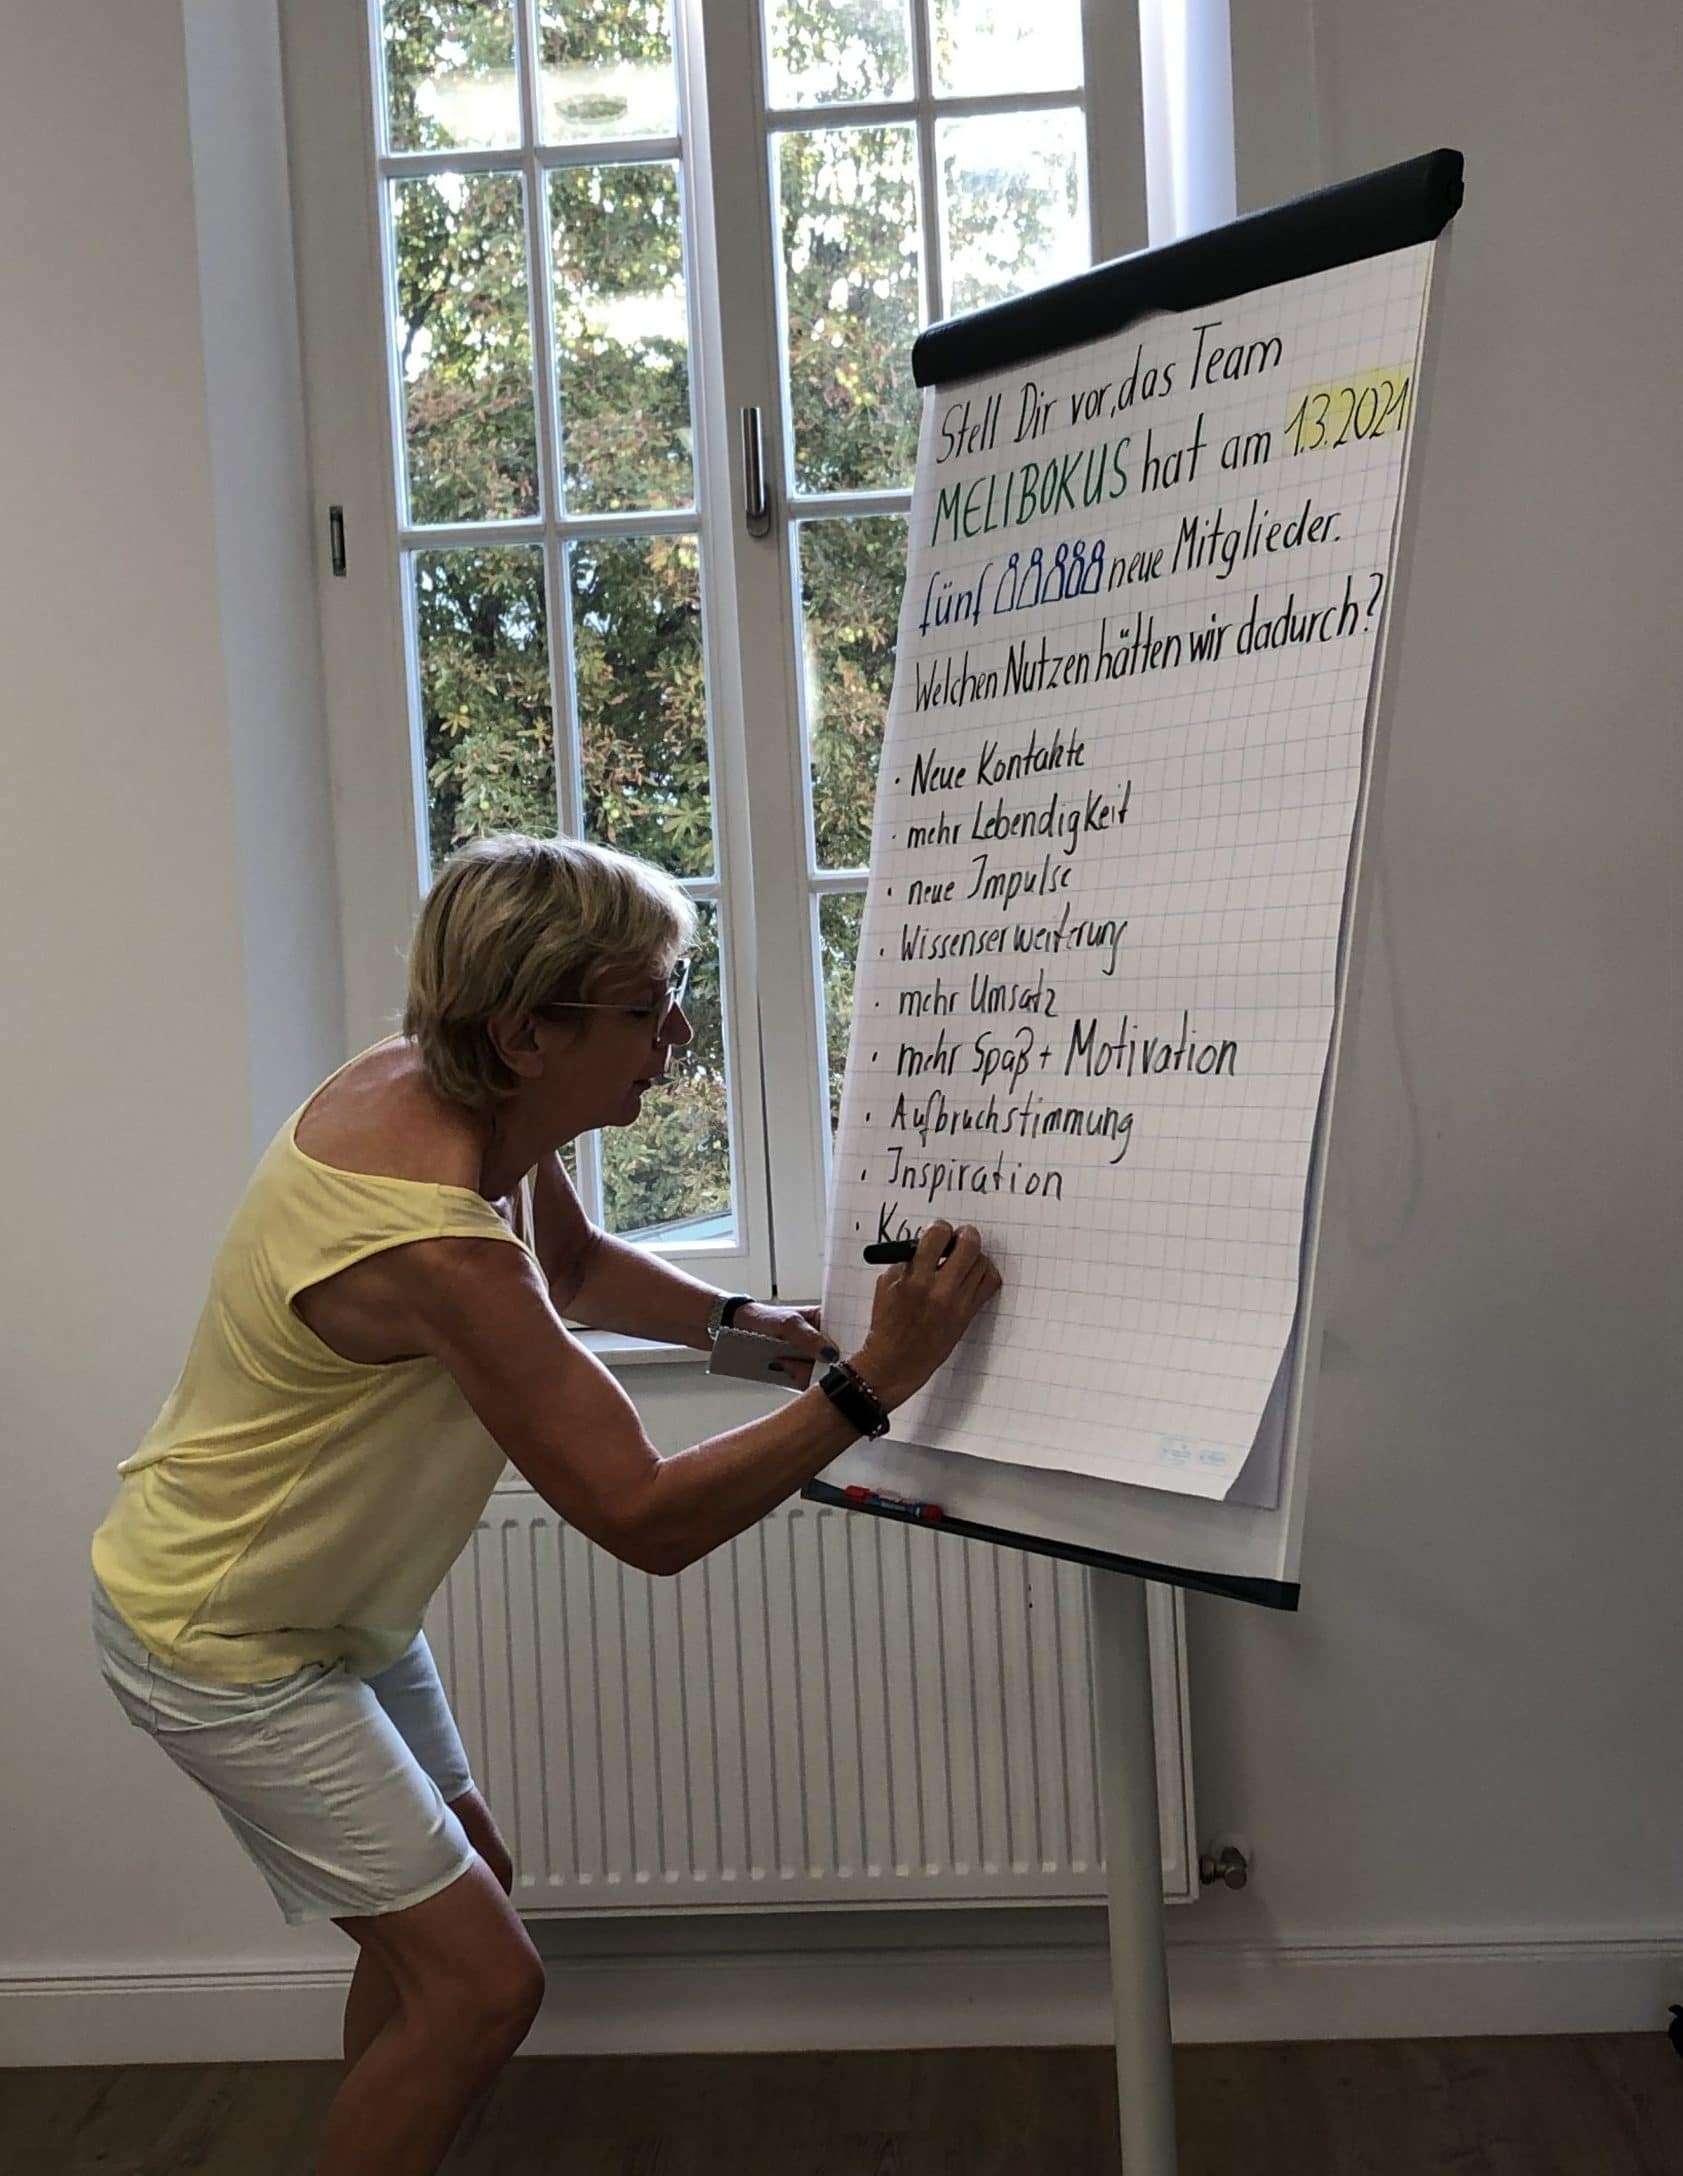 Stell Dir vor, das Team
MELIBOKUS hat am 1.3.2021
fünf neue Mitglieder.
Welchen Nutzen hätten wir dadurch?
· Neue Kontakte
· mehr Lebendigkeit
· neue Impulse
· Wissenserweiterung
· mehr Umsatz
· mehr Spaß + Motivation
· Aufbruchstimmung
· Inspiration